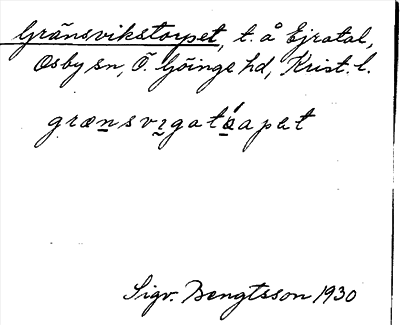 Gränsvikstorpet, t. å Ejratal,
Osby sn, Ö. Göinge hd, Krist. l.
Sigv. Bengtsson 1930